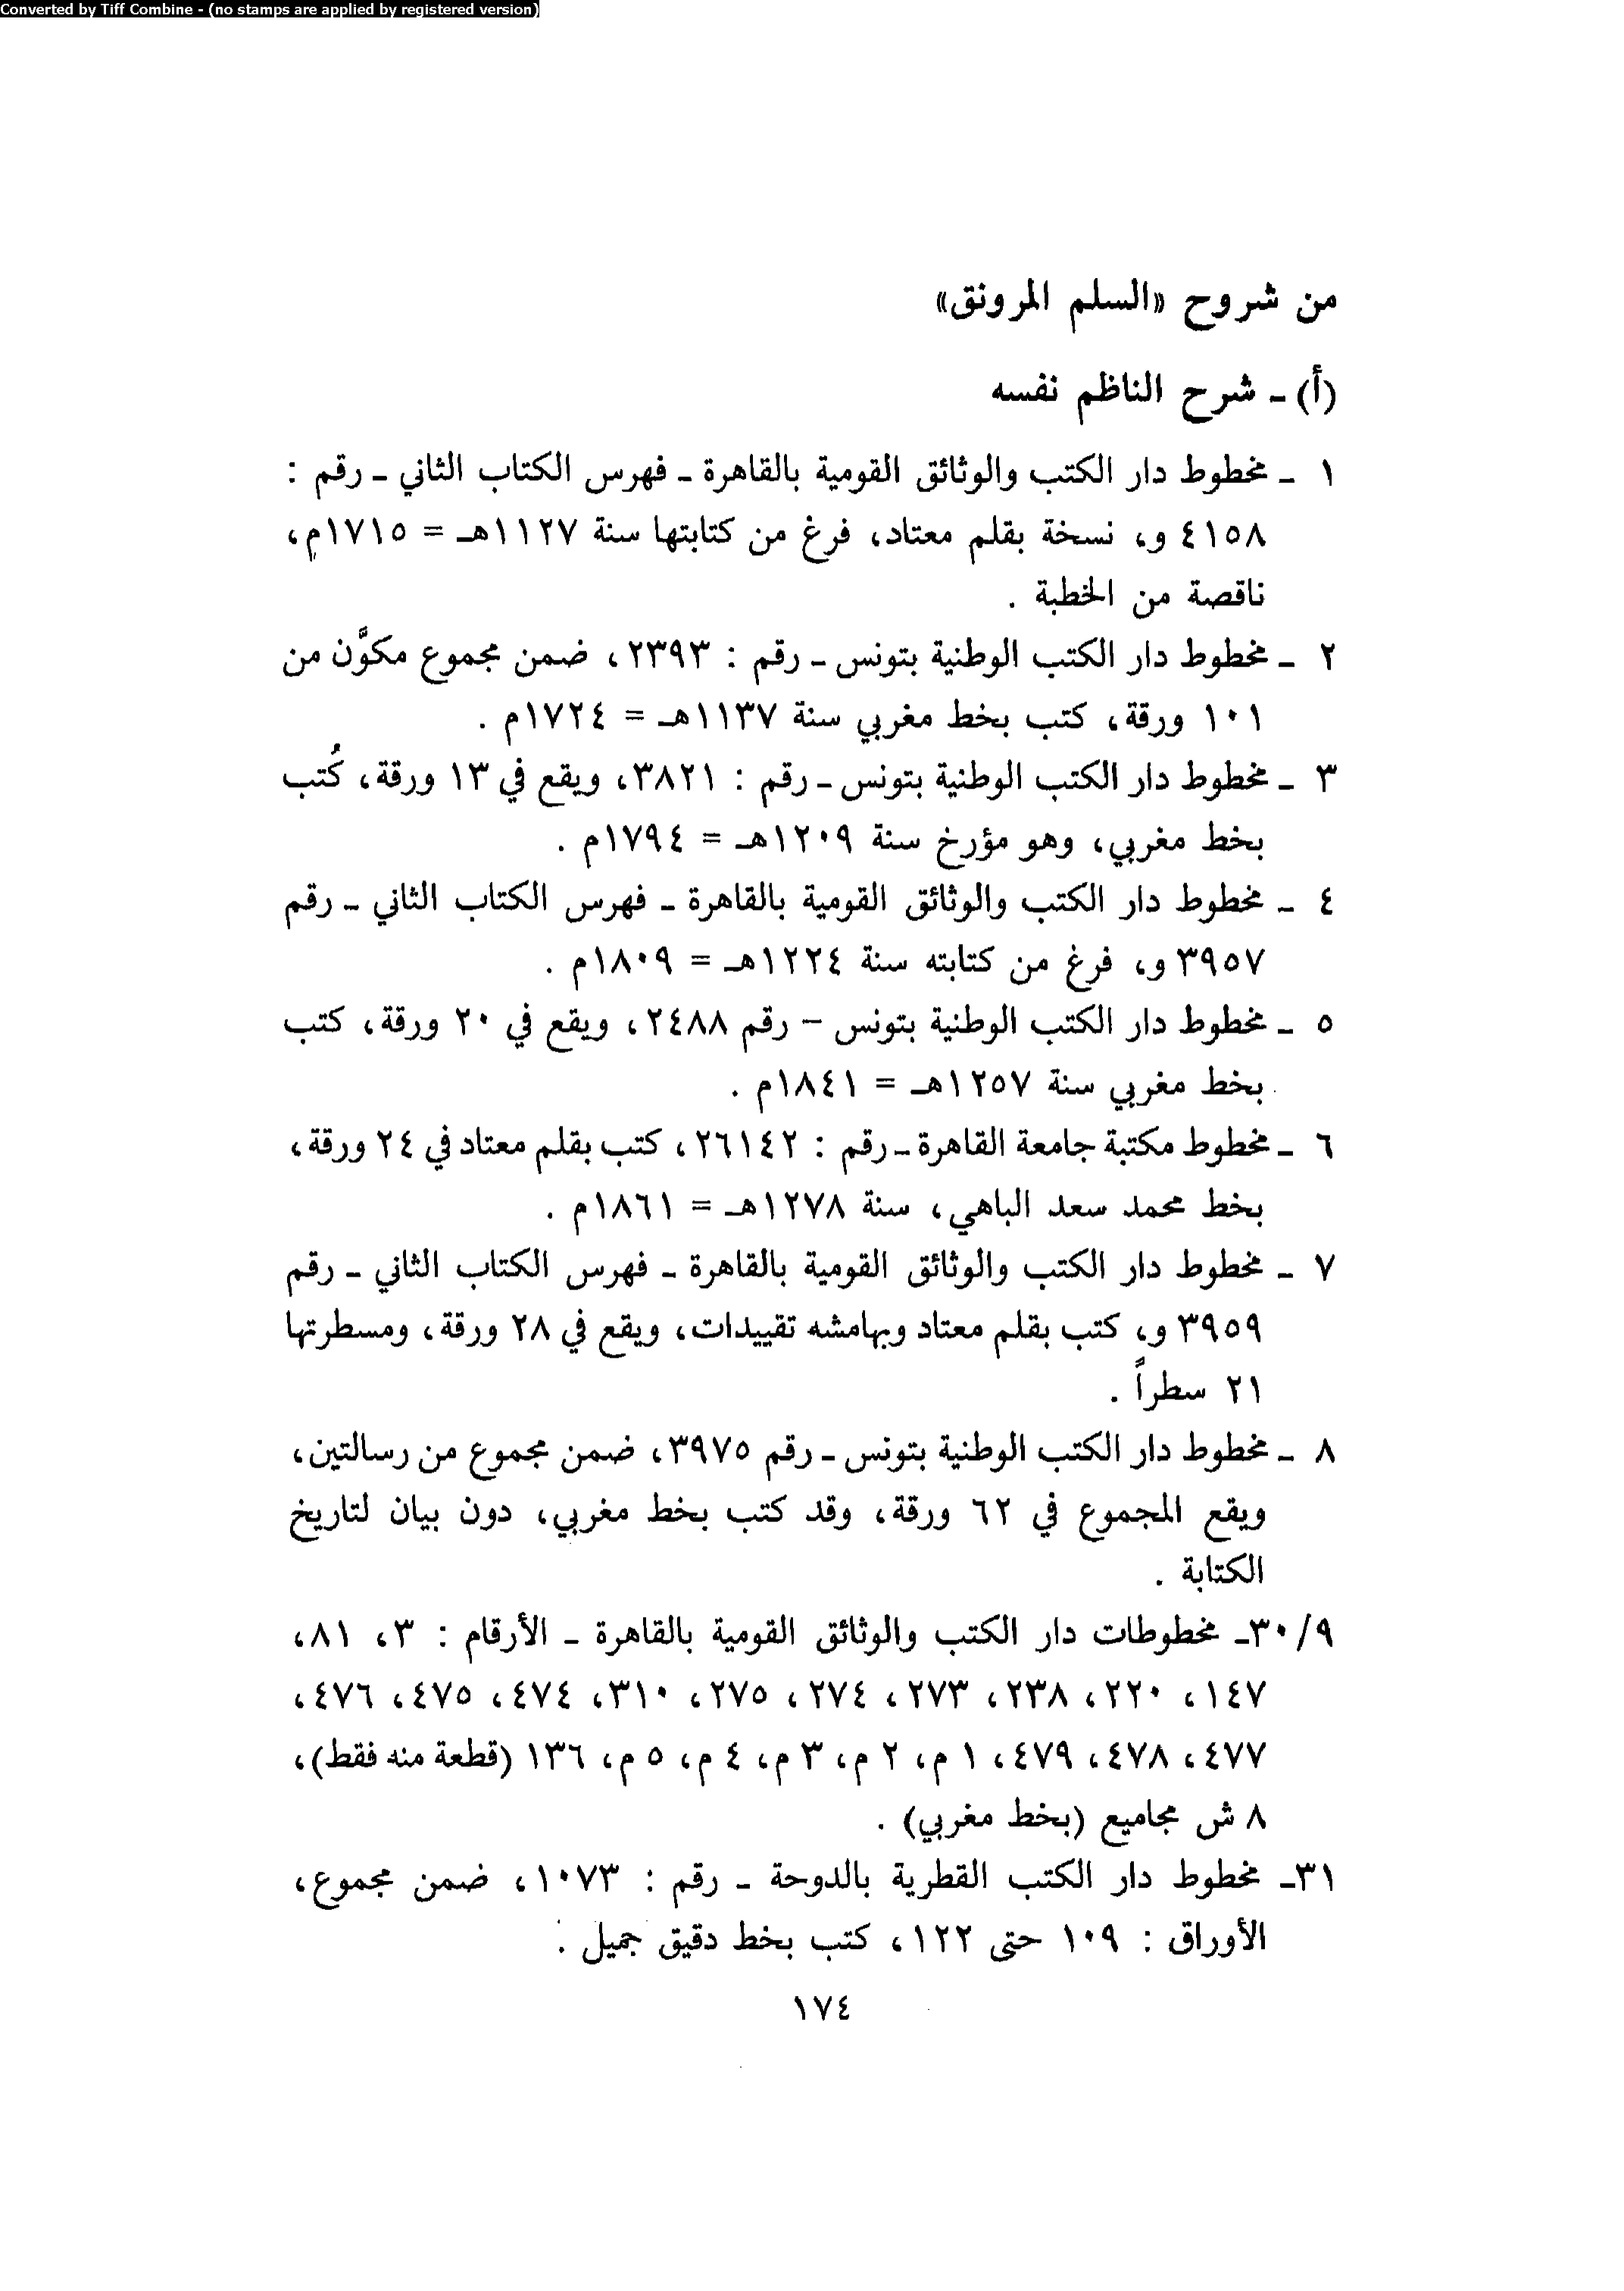 Converted by Tiff Combine - (no stamps are applied by registered version)
من شروح «السلم المرونق»
(أ) - شرح الناظم نفسه
١ - مخطوط دار الكتب والوثائق القومية بالقاهرة - فهرس الكتاب الثاني - رقم :
٤١٥٨ و، نسخة بقلم معتاد، فرغ من كتابتها سنة ١١٢٧هـ = ١٧١٥م،
ناقصة من الخطبة .
٢ - مخطوط دار الكتب الوطنية بتونس - رقم : ٢٣٩٣، ضمن مجموع مكوَّن من
١٠١ ورقة، كتب بخط مغربي سنة ١١٣٧هـ = ١٧٢٤م .
٣ - مخطوط دار الكتب الوطنية بتونس - رقم : ٣٨٢١، ويقع في ١٣ ورقة، كُتب
بخط مغربي، وهو مؤرخ سنة ١٢٠٩هـ = ١٧٩٤م .
٤ - مخطوط دار الكتب والوثائق القومية بالقاهرة - فهرس الكتاب الثاني - رقم
٣٩٥٧ و، فرغ من كتابته سنة ١٢٢٤هـ = ١٨٠٩م .
٥ - مخطوط دار الكتب الوطنية بتونس - رقم ٢٤٨٨، ويقع في ٢٠ ورقة، كتب
بخط مغربي سنة ١٢٥٧هـ = ١٨٤١م .
٦ - مخطوط مكتبة جامعة القاهرة - رقم : ٢٦١٤٢، كتب بقلم معتاد في ٢٤ ورقة،
بخط محمد سعد الباهي، سنة ١٢٧٨هـ = ١٨٦١م .
٧ - مخطوط دار الكتب والوثائق القومية بالقاهرة - فهرس الكتاب الثاني - رقم
٣٩٥٩ و، كتب بقلم معتاد وبهامشه تقييدات، ويقع في ٢٨ ورقة، ومسطرتها
٢١ سطراً .
٨ - مخطوط دار الكتب الوطنية بتونس - رقم ٣٩٧٥، ضمن مجموع من رسالتين،
ويقع المجموع في ٦٢ ورقة، وقد كتب بخط مغربي، دون بيان لتاريخ
الكتابة .
٣٠/٩- مخطوطات دار الكتب والوثائق القومية بالقاهرة - الأرقام : ٣، ٨١،
١٤٧، ٢٢٠، ٢٣٨، ٢٧٣، ٢٧٤، ٢٧٥، ٣١٠، ٤٧٤، ٤٧٥، ٤٧٦،
٤٧٧، ٤٧٨، ٤٧٩، ١ م، ٢ م، ٣ م، ٤ م، ٥ م، ١٣٦ (قطعة منه فقط)،
٨ ش مجاميع (بخط مغربي) .
٣١- مخطوط دار الكتب القطرية بالدوحة - رقم : ١٠٧٣، ضمن مجموع،
الأوراق : ١٠٩ حتى ١٢٢، كتب بخط دقيق جميل .
١٧٤